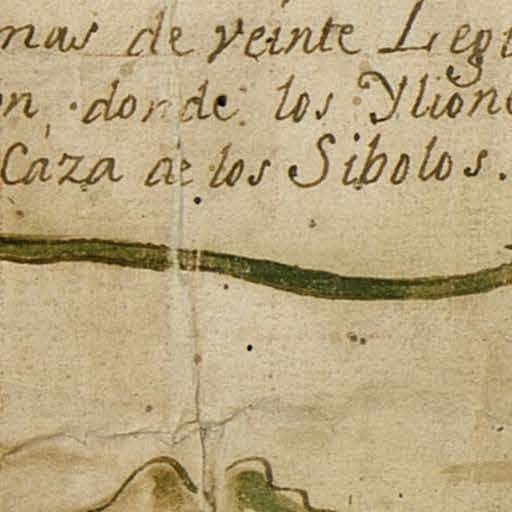 mas de veinte Leg
n donde los Ylion
Caza de los Sibolos.